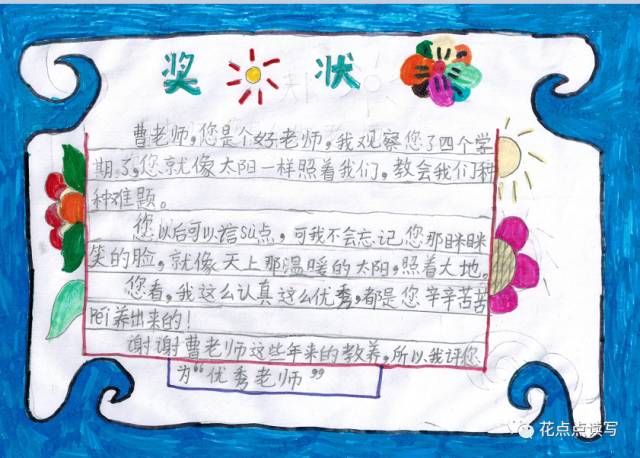 奖 状
曹老师,您是个好老师,我观察您了四个学
期了,您就像太阳一样照着我们,教会我们种
种难题。
您以后可以信sù点,可我不会忘记您那眯眯
笑的脸,就像天上那温暖的太阳,照着大地。
您看,我这么认真这么优秀,都是您辛辛苦苦
Péi养出来的!
谢谢曹老师这些年来的教养,所以我评您
为“优秀老师”
花点点读写